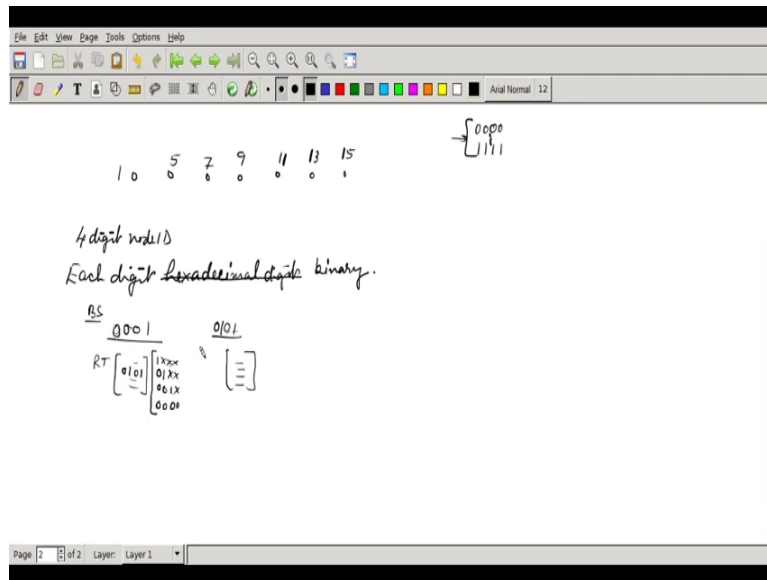 File Edit View Page Tools Options Help
T
Arial Normal 12
0000
1111
5 7 9 11 13 15
1 0 0 0 0 0 0 1
4 digit node ID
Each digit hexadecimal digit binary.
BS
0001 0101
RT 0101 1XXX
01XX
001X
0000
Page 2 of 2 Layer: Layer 1